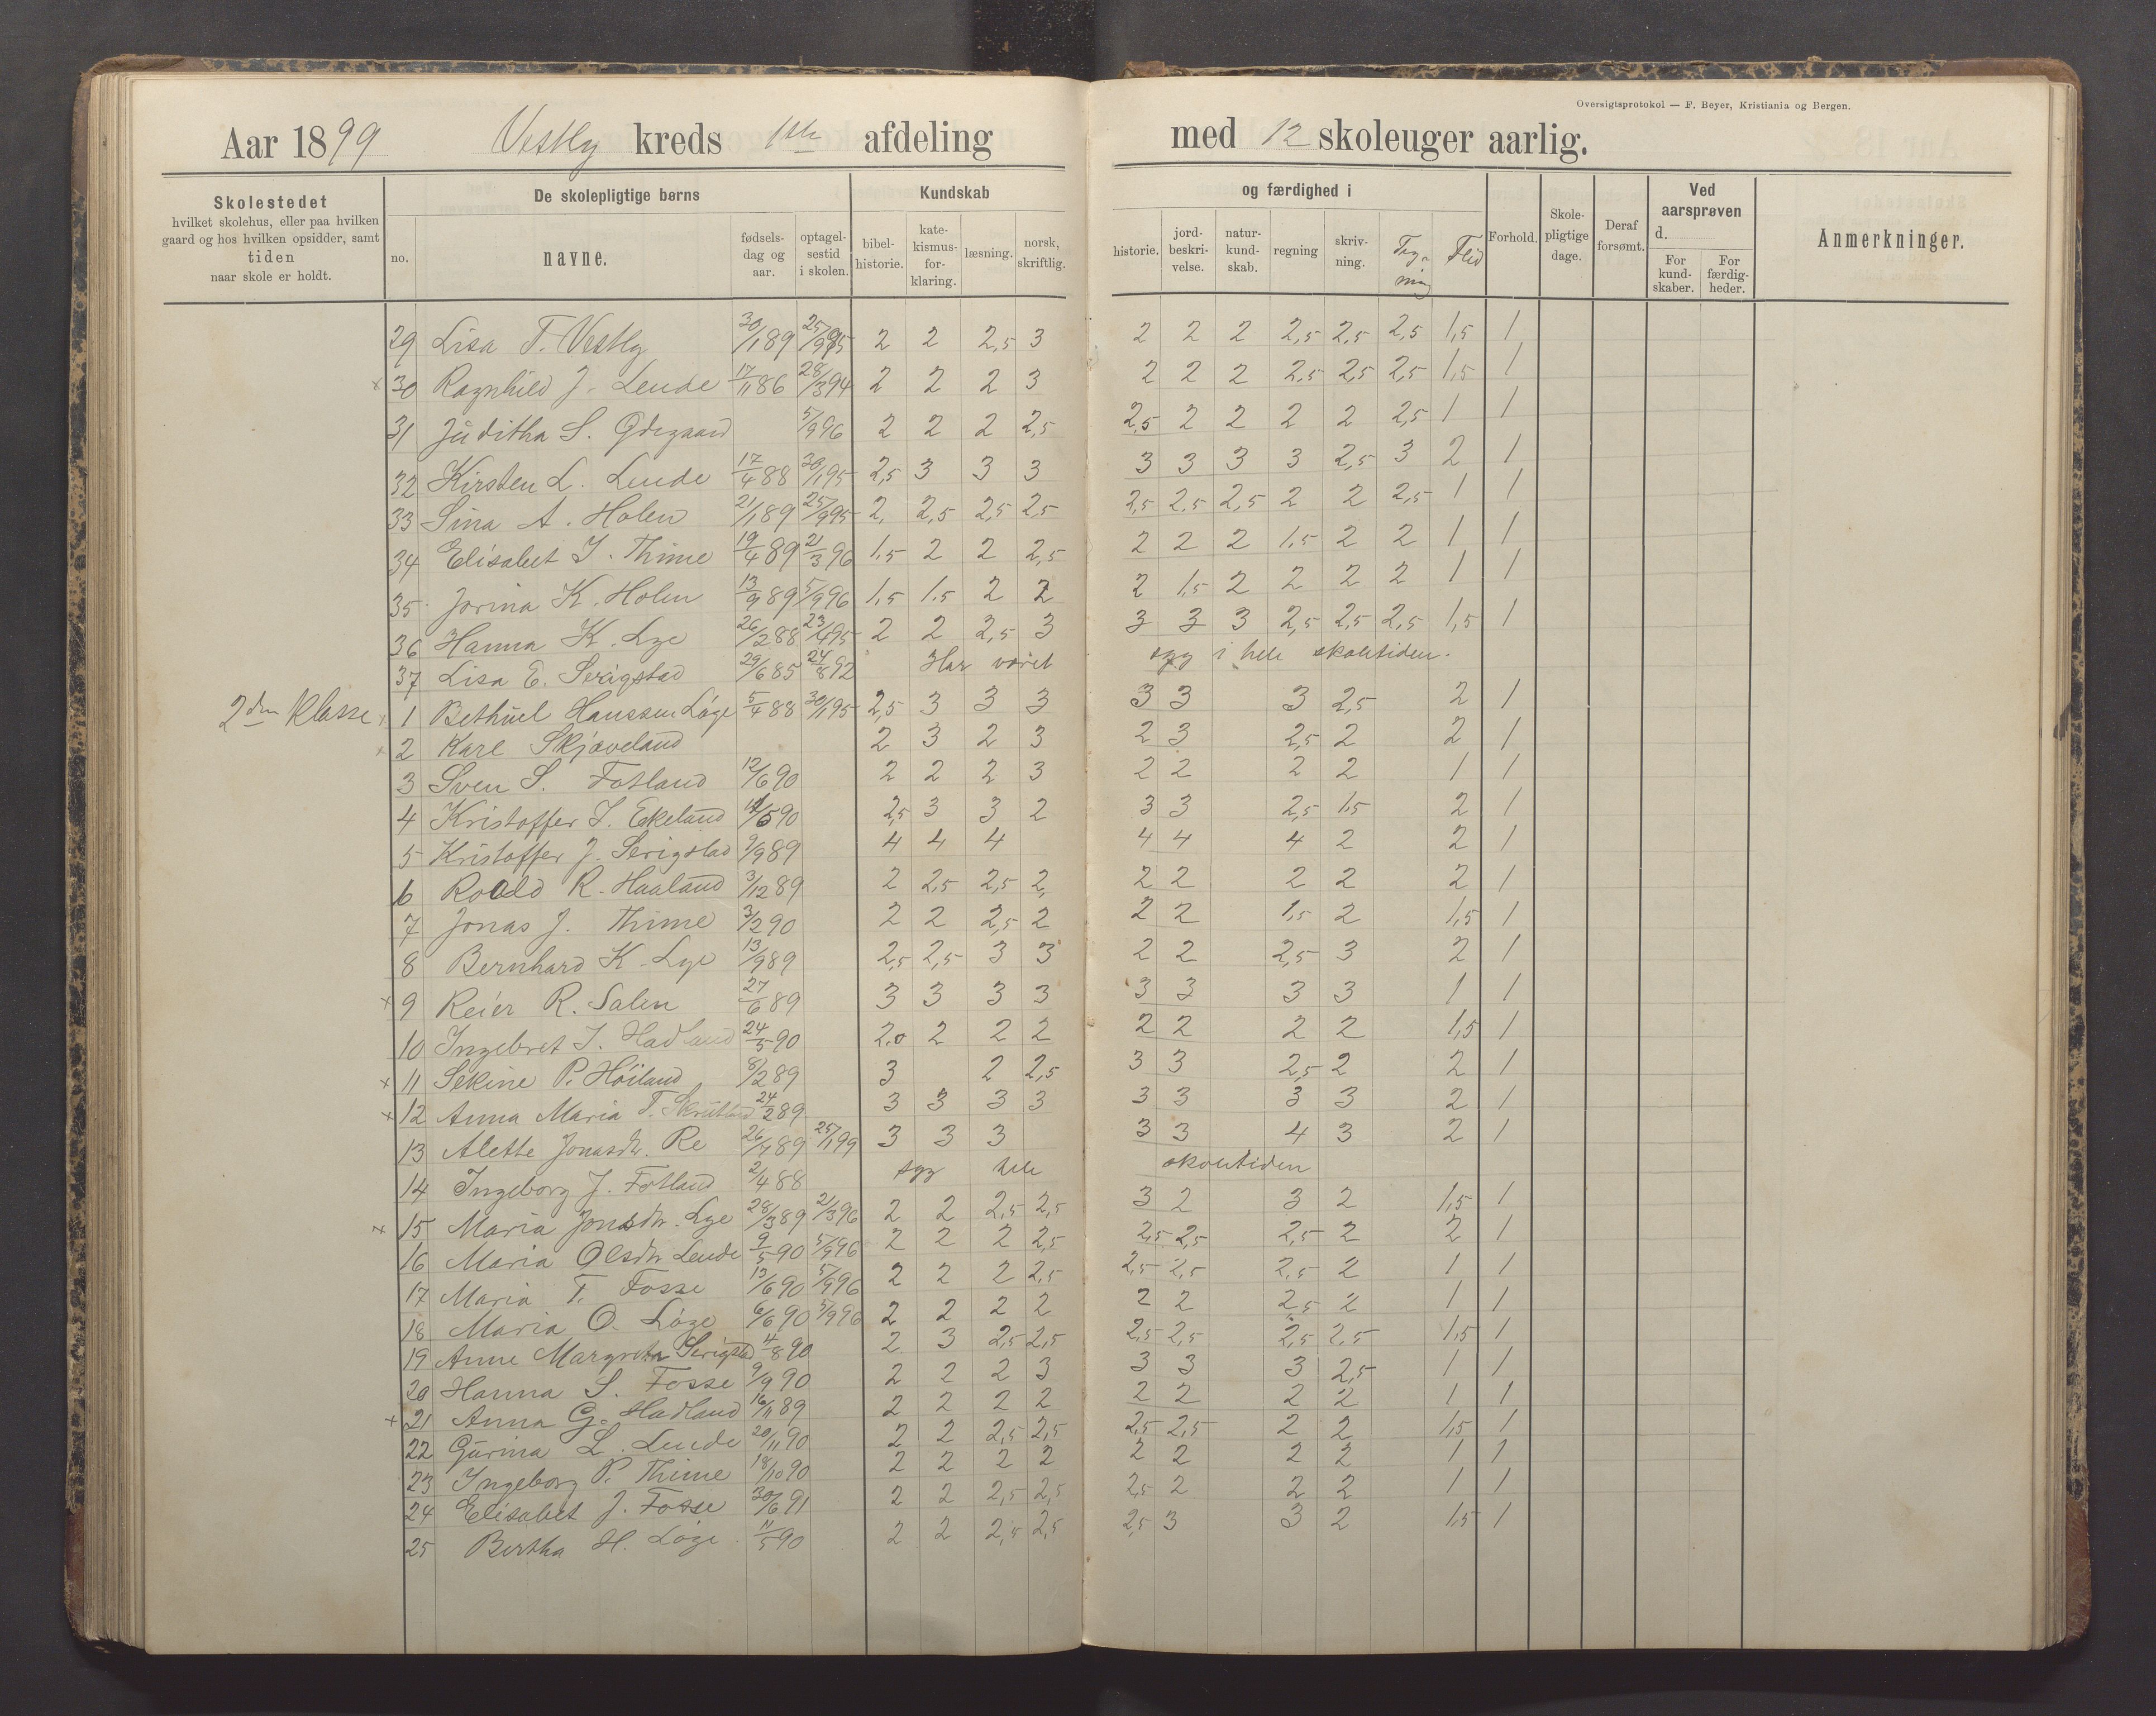 Oversigtsprotokol — F. Beyer, Kristiania og Bergen.
Aar 1899 Vestly kreds 1ste afdeling med 12 skoleuger aarlig.
Skolestedet hvilket skolehus, eller paa hvilken gaard og hos hvilken opsidder, samt tiden naar skole er holdt.
De skolepligtige børns
no. navne. fødsels-dag og aar. optagel-sestid i skolen.
Kundskab og færdighed i
bibel-historie. kate-kismus-for-klaring. læsning. norsk, skriftlig. historie. jord-beskri-velse. natur-kund-skab. regning skriv-ning. Teg-ning Flid
Forhold. Skole-pligtige dage. Deraf forsømt. Ved aarsprøven d. For kund-skaber. For færdig-heder. Anmerkninger.
29 Lisa T. Vestly 30/1 89 25/9 95 2 2 2,5 3 2 2 2 2,5 2,5 2,5 1,5 1
x 30 Ragnhild J. Lende 17/1 86 28/3 94 2 2 2 3 2 2 2 2,5 2,5 2,5 1,5 1
31 Juditha S. 5/9 96 2 2 2 2,5 2,5 2 2 2 2 2,5 1 1
32 Kirsten L. Lende 17/4 88 30/1 95 2,5 3 3 3 3 3 3 3 2,5 3 2 1
33 Sina A. Holen 21/1 89 25/9 95 2, 2,5 2,5 2,5 2,5 2,5 2,5 2 2 2,5 1 1
34 Elisabet J. Thime 19/4 89 21/3 96 1,5 2 2 2,5 2 2 2 1,5 2 2 1 1
35 Jorina K. Holen 13/9 89 5/9 96 1,5 1,5 2 2 2 1,5 2 2 2 2 1 1
36 Hanna K. Lye 26/2 88 23/4 95 2 2 2,5 3 3 3 3 2,5 2,5 2,5 1,5 1
37 Lisa E. Serigstad 29/6 85 24/8 92 Har været syg i hele skoletiden.
2den Klasse 1 Bethuel Hanssen Løge 5/4 88 30/1 95 2,5 3 3 3 3 3 3 2,5 2 1
x 2 Karl Skjæveland 2 3 2 3 2 3 2,5 2 2 1
3 Sven S. Fotland 12/6 90 2 2 2 3 2 2 2 2 1 1
4 Kristoffer S. Ekeland 90 2,5 3 3 2 3 3 2,5 1,5 2 1
5 Kristoffer J. Serigstad 9/9 89 4 4 4 4 4 4 2 2 1
6 Roald R. Haaland 3/12 89 2 2,5 2,5 2, 2 2 2 2 2 1
7 Jonas J. Thime 3/2 90 2 2 2,5 2 2 2 1,5 2 1,5 1
8 Bernhard K. Lye 13/9 89 2,5 2,5 3 3 2 2 2,5 3 2 1
x 9 Reier R. Salen 27/6 89 3 3 3 3 3 3 3 3 1 1
10 Ingebret J. Hadland 24/5 90 2,0 2 2 2 2 2 2 2 1,5 1
x 11 Sekine P. Höiland 8/2 89 3 2 2,5 3 3 2,5 2 2 1
x 12 Anna Maria T. 24/2 89 3 3 3 3 3 3 3 3 2 1
13 Alette Jonasdtr. Re 26/7 89 25/1 99 3 3 3 3 3 4 3 2 1
14 Ingeborg J. Fotland 2/4 88 syg hele skoletiden
x 15 Maria Jonsdtr. Lye 28/3 89 21/3 96 2 2 2,5 2,5 3 2 3 2 1,5 1
16 Maria Olsdtr Lende 9/5 90 5/9 96 2 2 2 2,5 2,5 2,5 2,5 2 2 1
17 Maria T. Fosse 13/6 90 5/9 96 2 2 2 2,5 2,5 2,5 2,5 2 1 1
18 Maria O. Løge 6/6 90 5/9 96 2 2 2 2 2 2 2,5 2 1 1
19 Anne Margreta Serigstad 4/8 90 2 3 2,5 2,5 2,5 2,5 2,5 2,5 1,5 1
20 Hanna S. Fosse 9/9 90 2 2 2 3 3 3 3 2,5 1 1
x 21 Anna G. Hadland 16/11 89 2 2 2 2 2 2 2 2 1 1
22 Gurina L. Lende 20/11 90 2 2 2,5 2,5 2,5 2,5 2 2 1,5 1
23 Ingeborg P. Thime 18/10 90 2 2 2 2 2 2 2 2 1 1
24 Elisabet J. Fosse 30/6 91 2 2 2,5 2,5 2,5 2 2 2 1 1
25 Bertha H. Løge 11/5 90 2 2 2,5 2,5 2,5 3 3 2 1,5 1